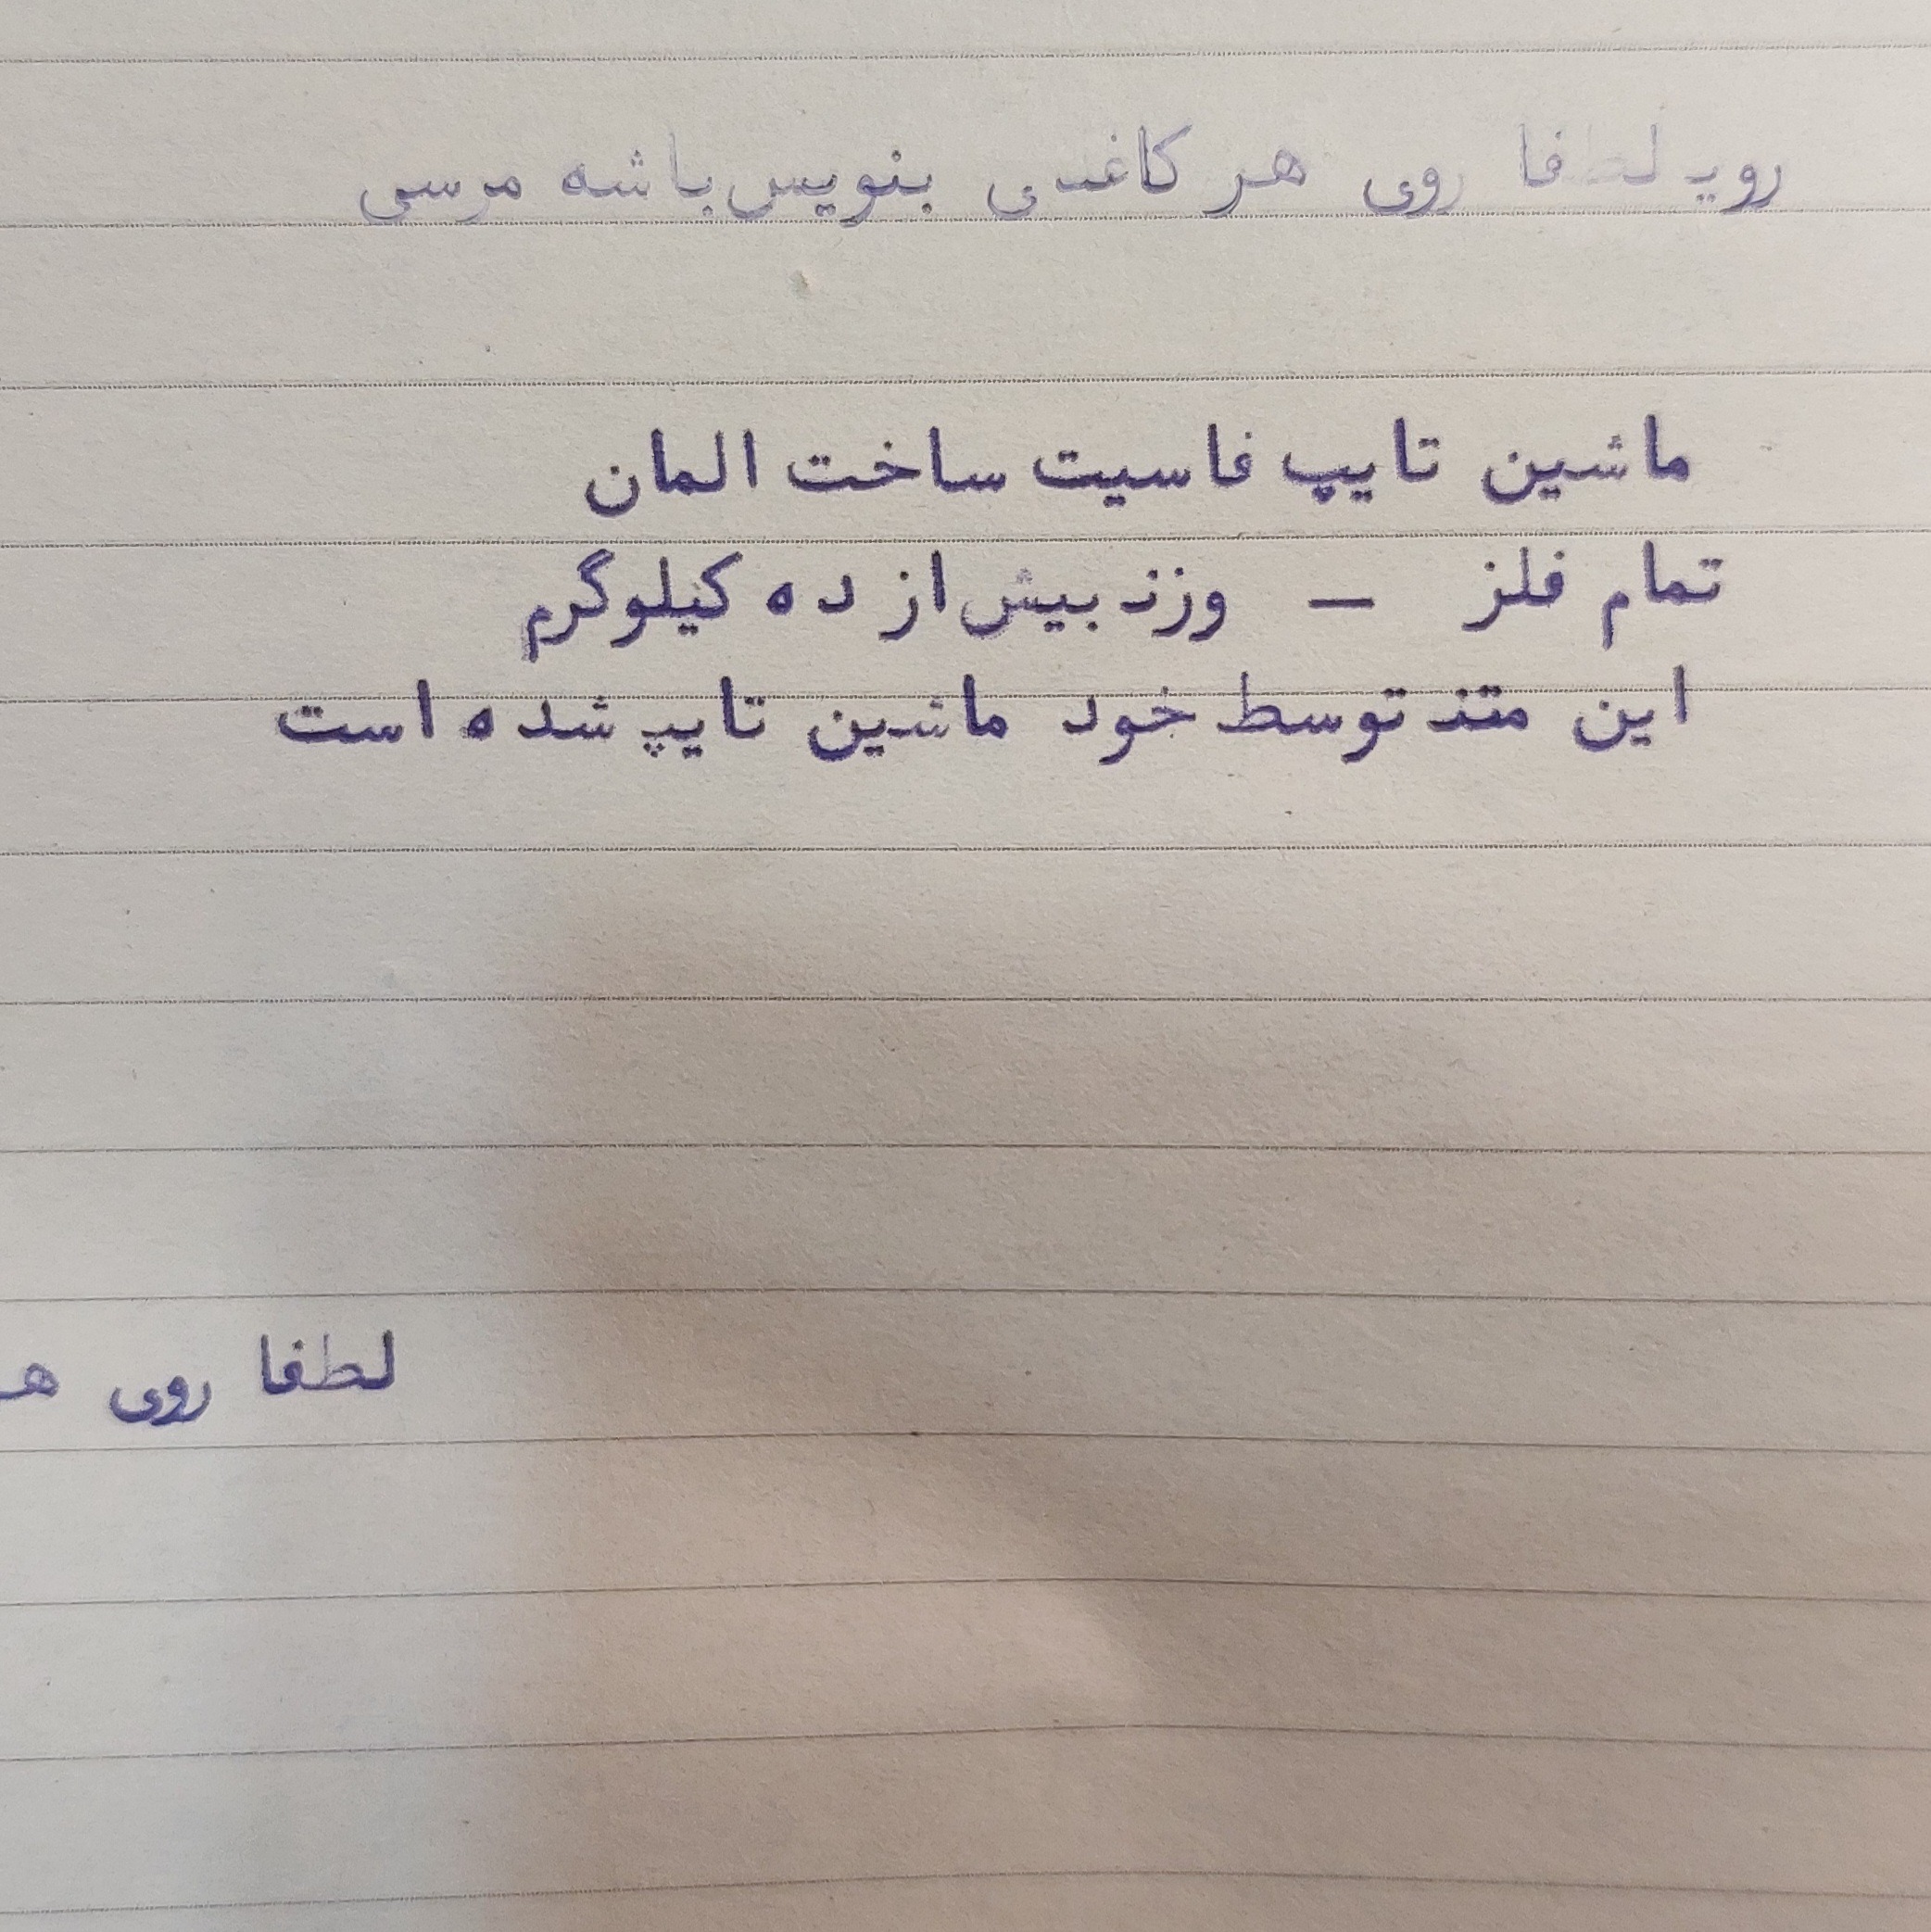 رویـ لطفا روی هر کاغذی بنویس باشه مرسی
ماشین تایپ فاسیت ساخت المان
تمام فلز – وزنـ بیش از ده کیلوگرم
این متنـ توسط خود ماشین تایپ شده است
لطفا روی هـ